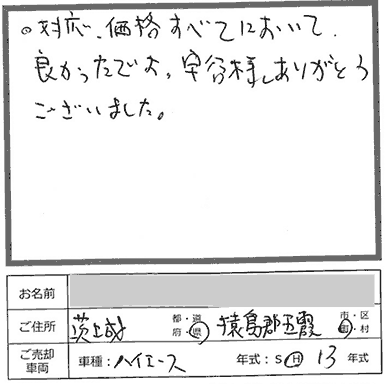 ○対応、価格すべてにおいて、
良かったでス。安谷様、ありがとう
ございました。
お名前
ご住所 茨城 都・道 府・県 猿島郡五霞 市・区 町・村
ご売却車両 車種：ハイエース 年式：S・H 13 年式